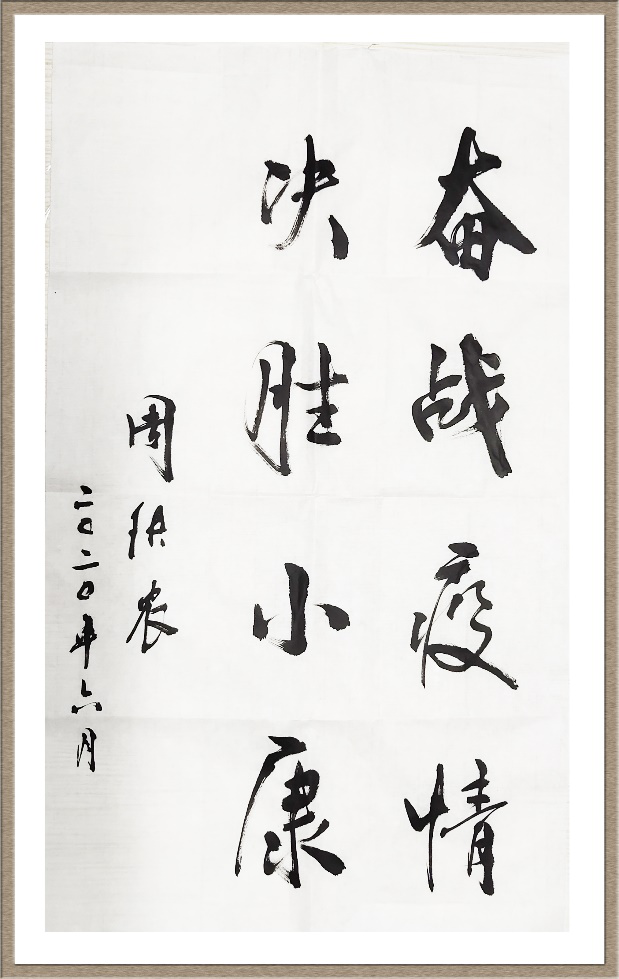 奋战疫情
决胜小康
周
农
二〇二〇年六月